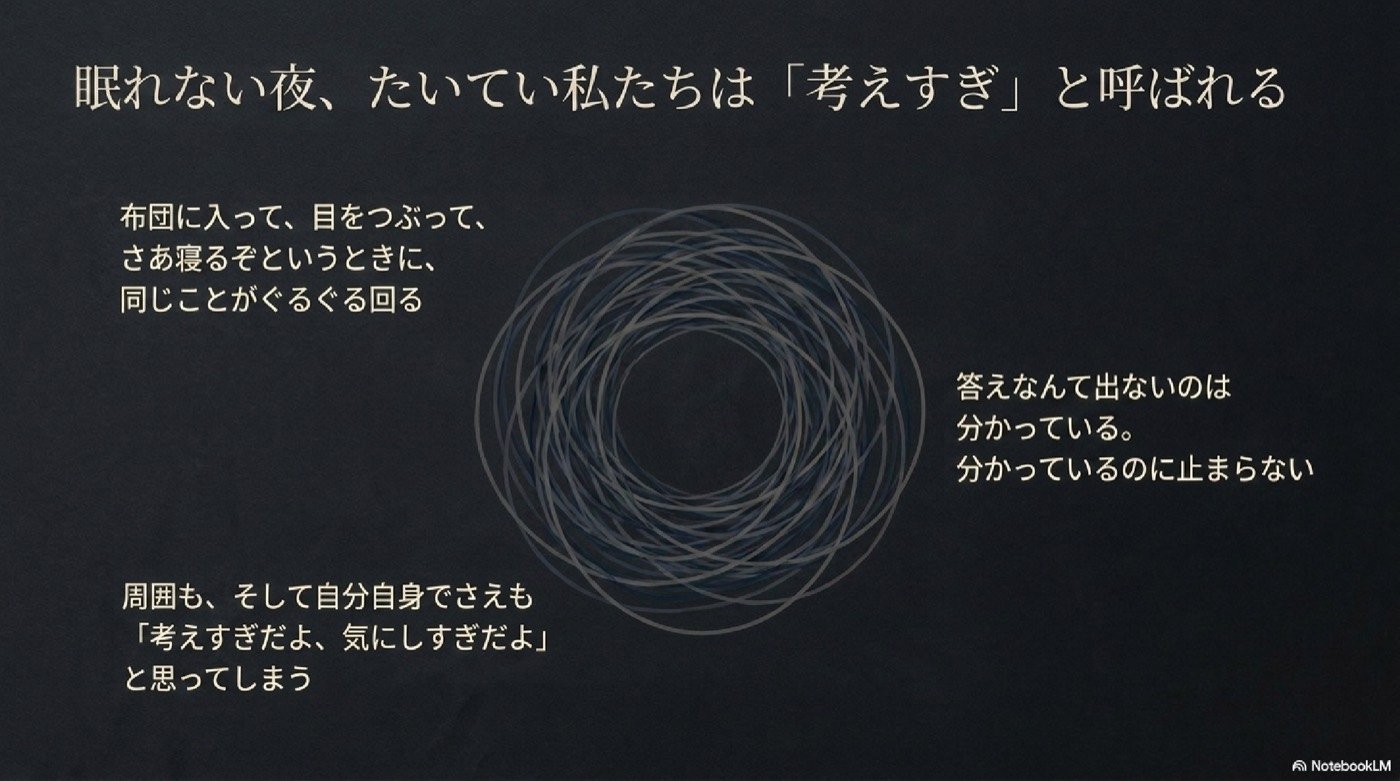 眠れない夜、たいてい私たちは「考えすぎ」と呼ばれる
布団に入って、目をつぶって、
さあ寝るぞというときに、
同じことがぐるぐる回る
答えなんて出ないのは
分かっている。
分かっているのに止まらない
周囲も、そして自分自身でさえも
「考えすぎだよ、気にしすぎだよ」
と思ってしまう
NotebookLM